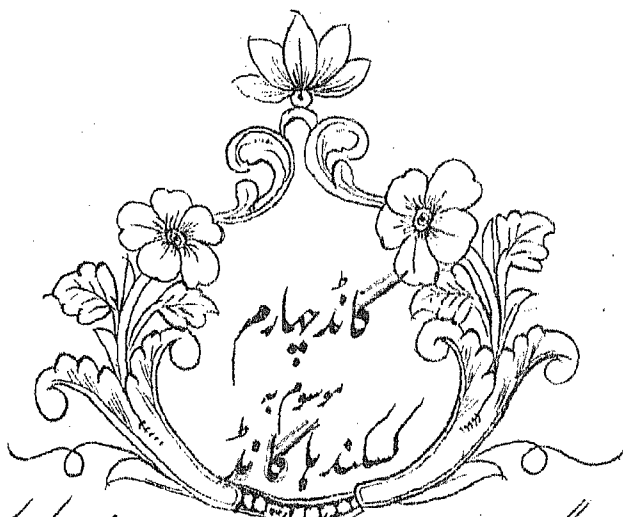 کانڈ چہارم
موسوم بہ
کسکندہا کانڈ